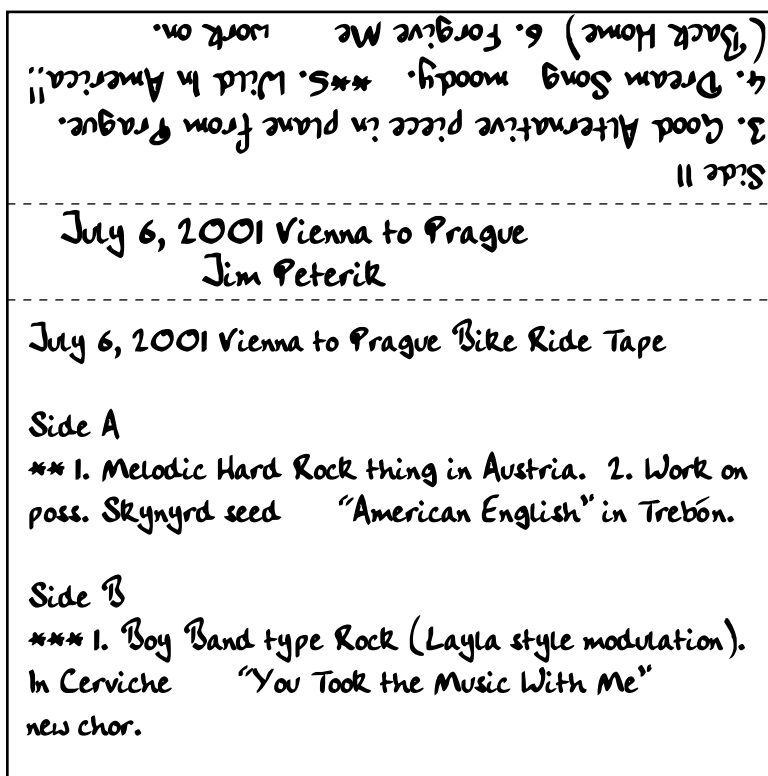 Side II
3. Good Alternative piece in plane from Prague.
4. Dream Song moody. **5. Wild In America!!
(Back Home) 6. Forgive Me work on.
July 6, 2001 Vienna to Prague
Jim Peterik
July 6, 2001 Vienna to Prague Bike Ride Tape
Side A
** 1. Melodic Hard Rock thing in Austria. 2. Work on
poss. Skynyrd seed “American English” in Trebón.
Side B
*** 1. Boy Band type Rock (Layla style modulation).
In Cerviche “You Took the Music With Me”
new chor.